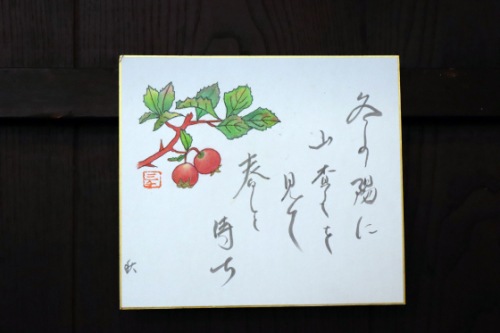 冬の陽に
山査子を
見て
春を
待ち